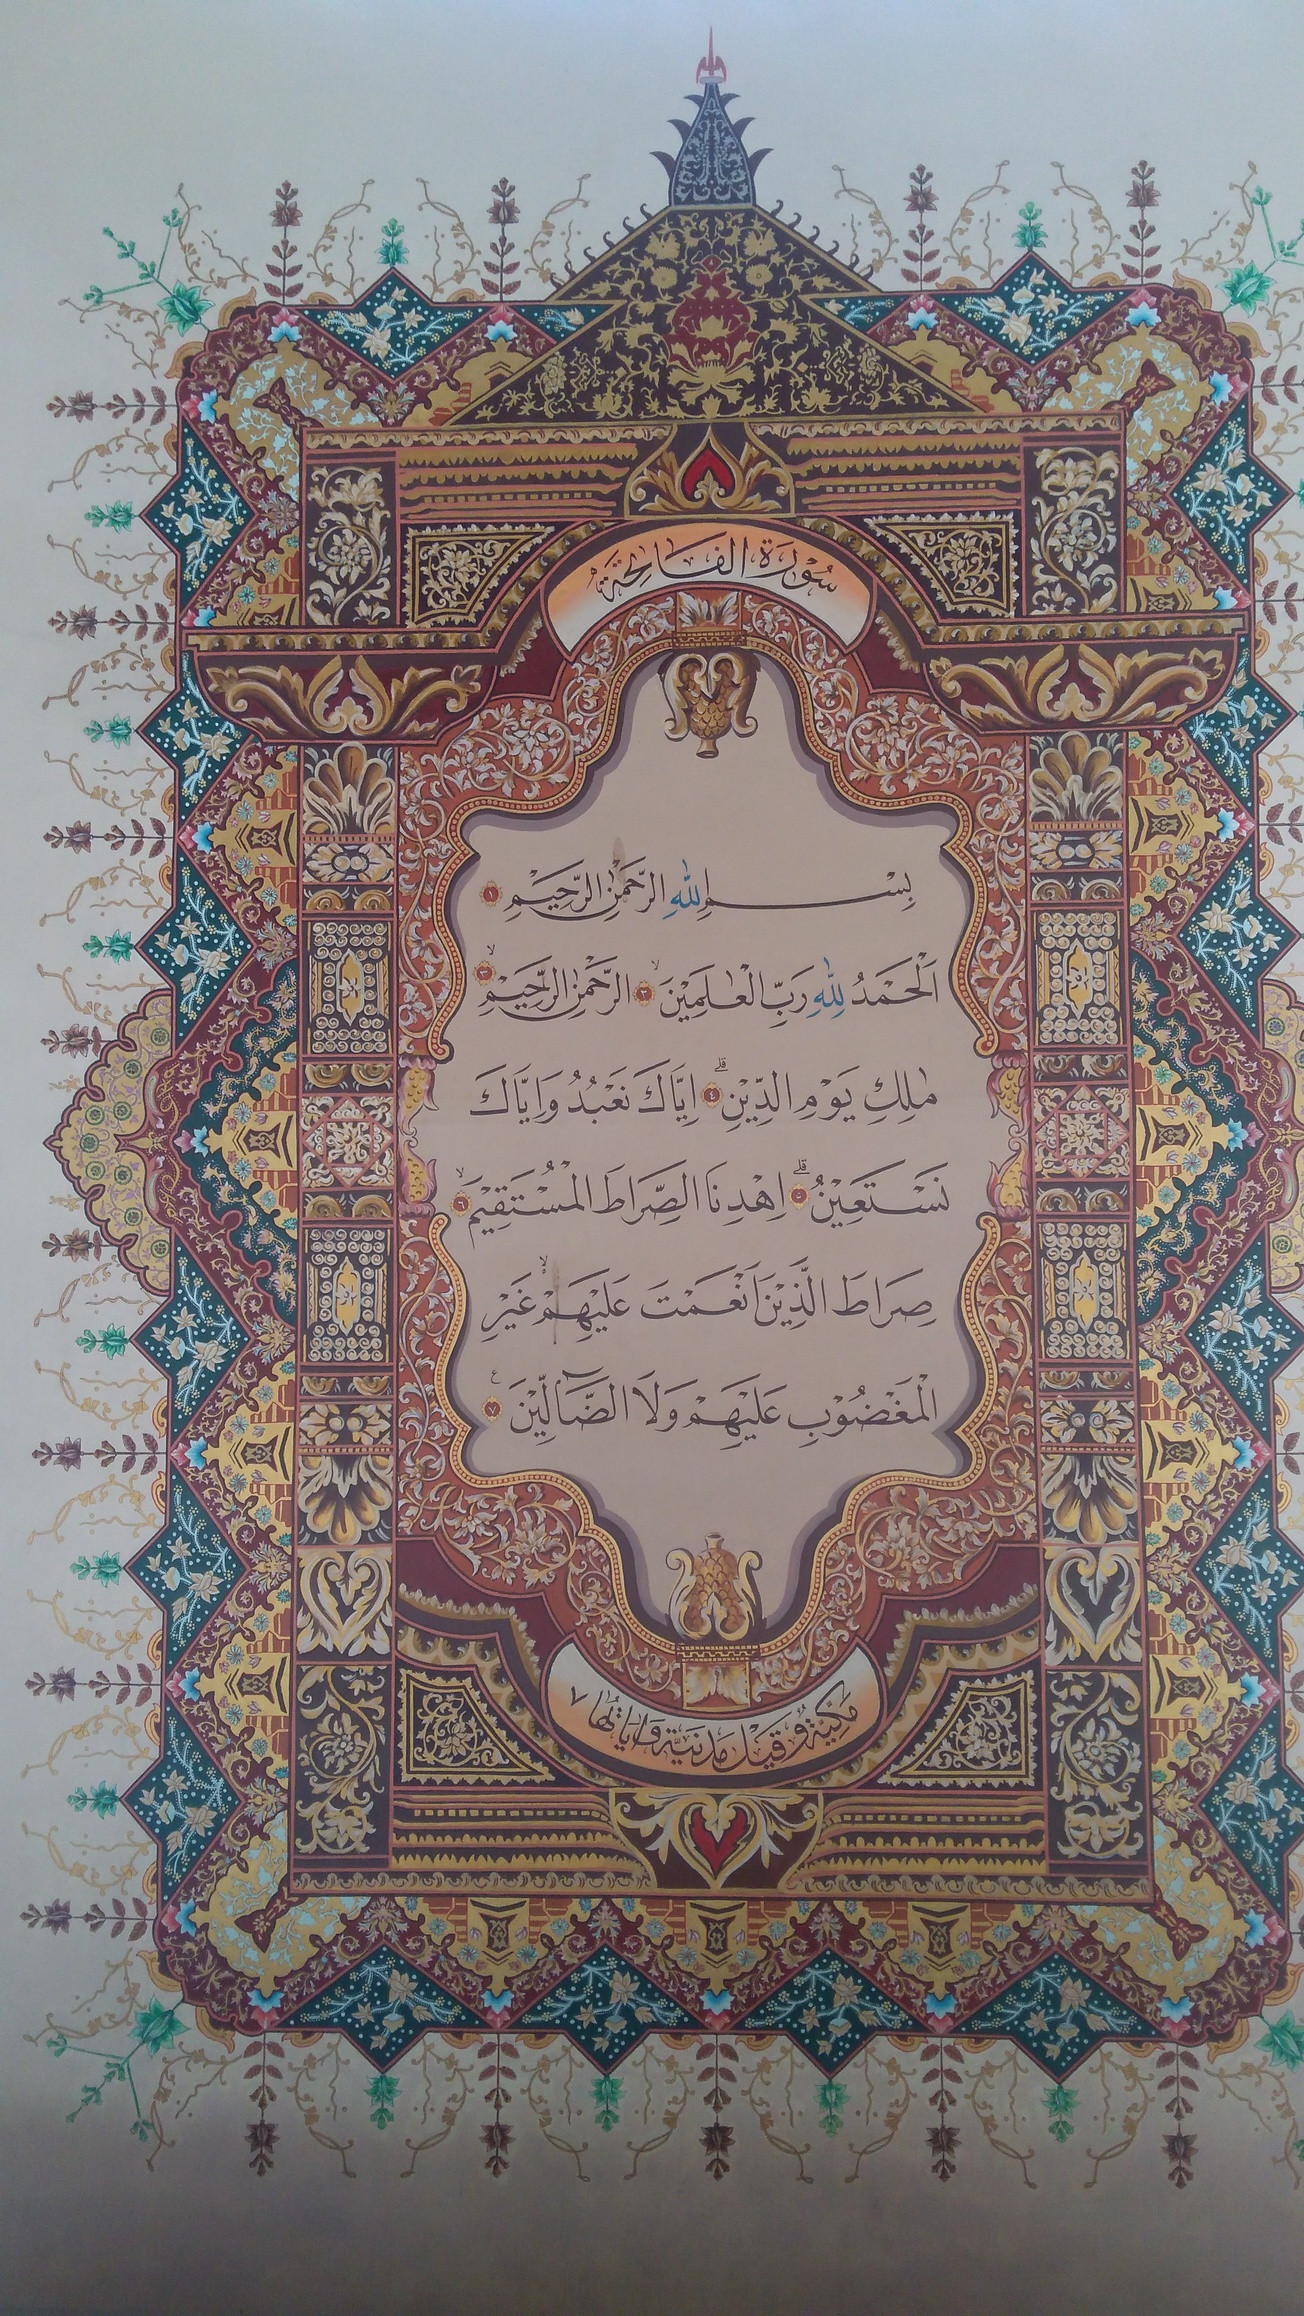 سُوْرَةُ الْفَاتِحَةِ
بِسْمِ اللهِ الرَّحْمٰنِ الرَّحِيْمِ ١
اَلْحَمْدُ لِلهِ رَبِّ الْعٰلَمِيْنَۙ ٢ الرَّحْمٰنِ الرَّحِيْمِۙ ٣
مٰلِكِ يَوْمِ الدِّيْنِۗ ٤ اِيَّاكَ نَعْبُدُ وَاِيَّاكَ
نَسْتَعِيْنُۗ ٥ اِهْدِنَا الصِّرَاطَ الْمُسْتَقِيْمَۙ ٦
صِرَاطَ الَّذِيْنَ اَنْعَمْتَ عَلَيْهِمْۙ غَيْرِ
الْمَغْضُوْبِ عَلَيْهِمْ وَلَا الضَّاۤلِّيْنَ ࣖ ٧
مَكِّيَّةٌ وَقِيْلَ مَدَنِيَّةٌ وَاٰيَاتُهَا ٧